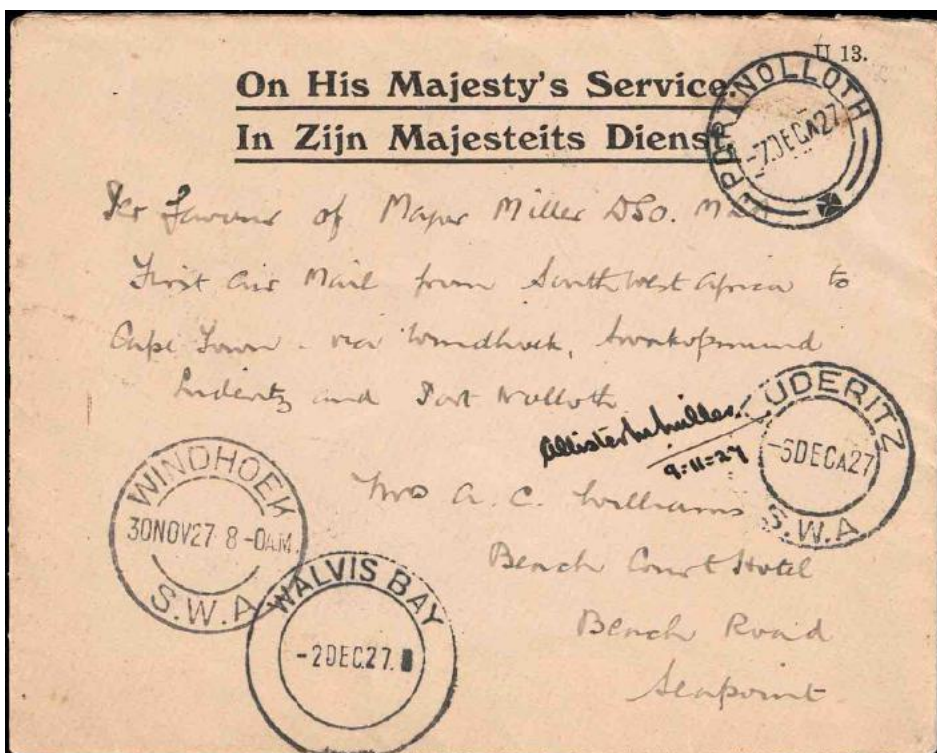 U 13.
On His Majesty's Service.
In Zijn Majesteits Dienst
PORT NOLLOTH
-7DECA27
Per Favour of Major Miller DSO. MLA
First Air Mail from South West Africa to
Cape Town - via Windhoek, Swakopmund
Luderitz and Port Nolloth
Allister M Miller
9-11-27
LUDERITZ
-6DECA27
S.W.A
Mrs A. C. Williams
WINDHOEK
30NOV27 8-0AM
S.W.A
Beach Court Hotel
WALVIS BAY
-2DEC27.
Beach Road
Seapoint